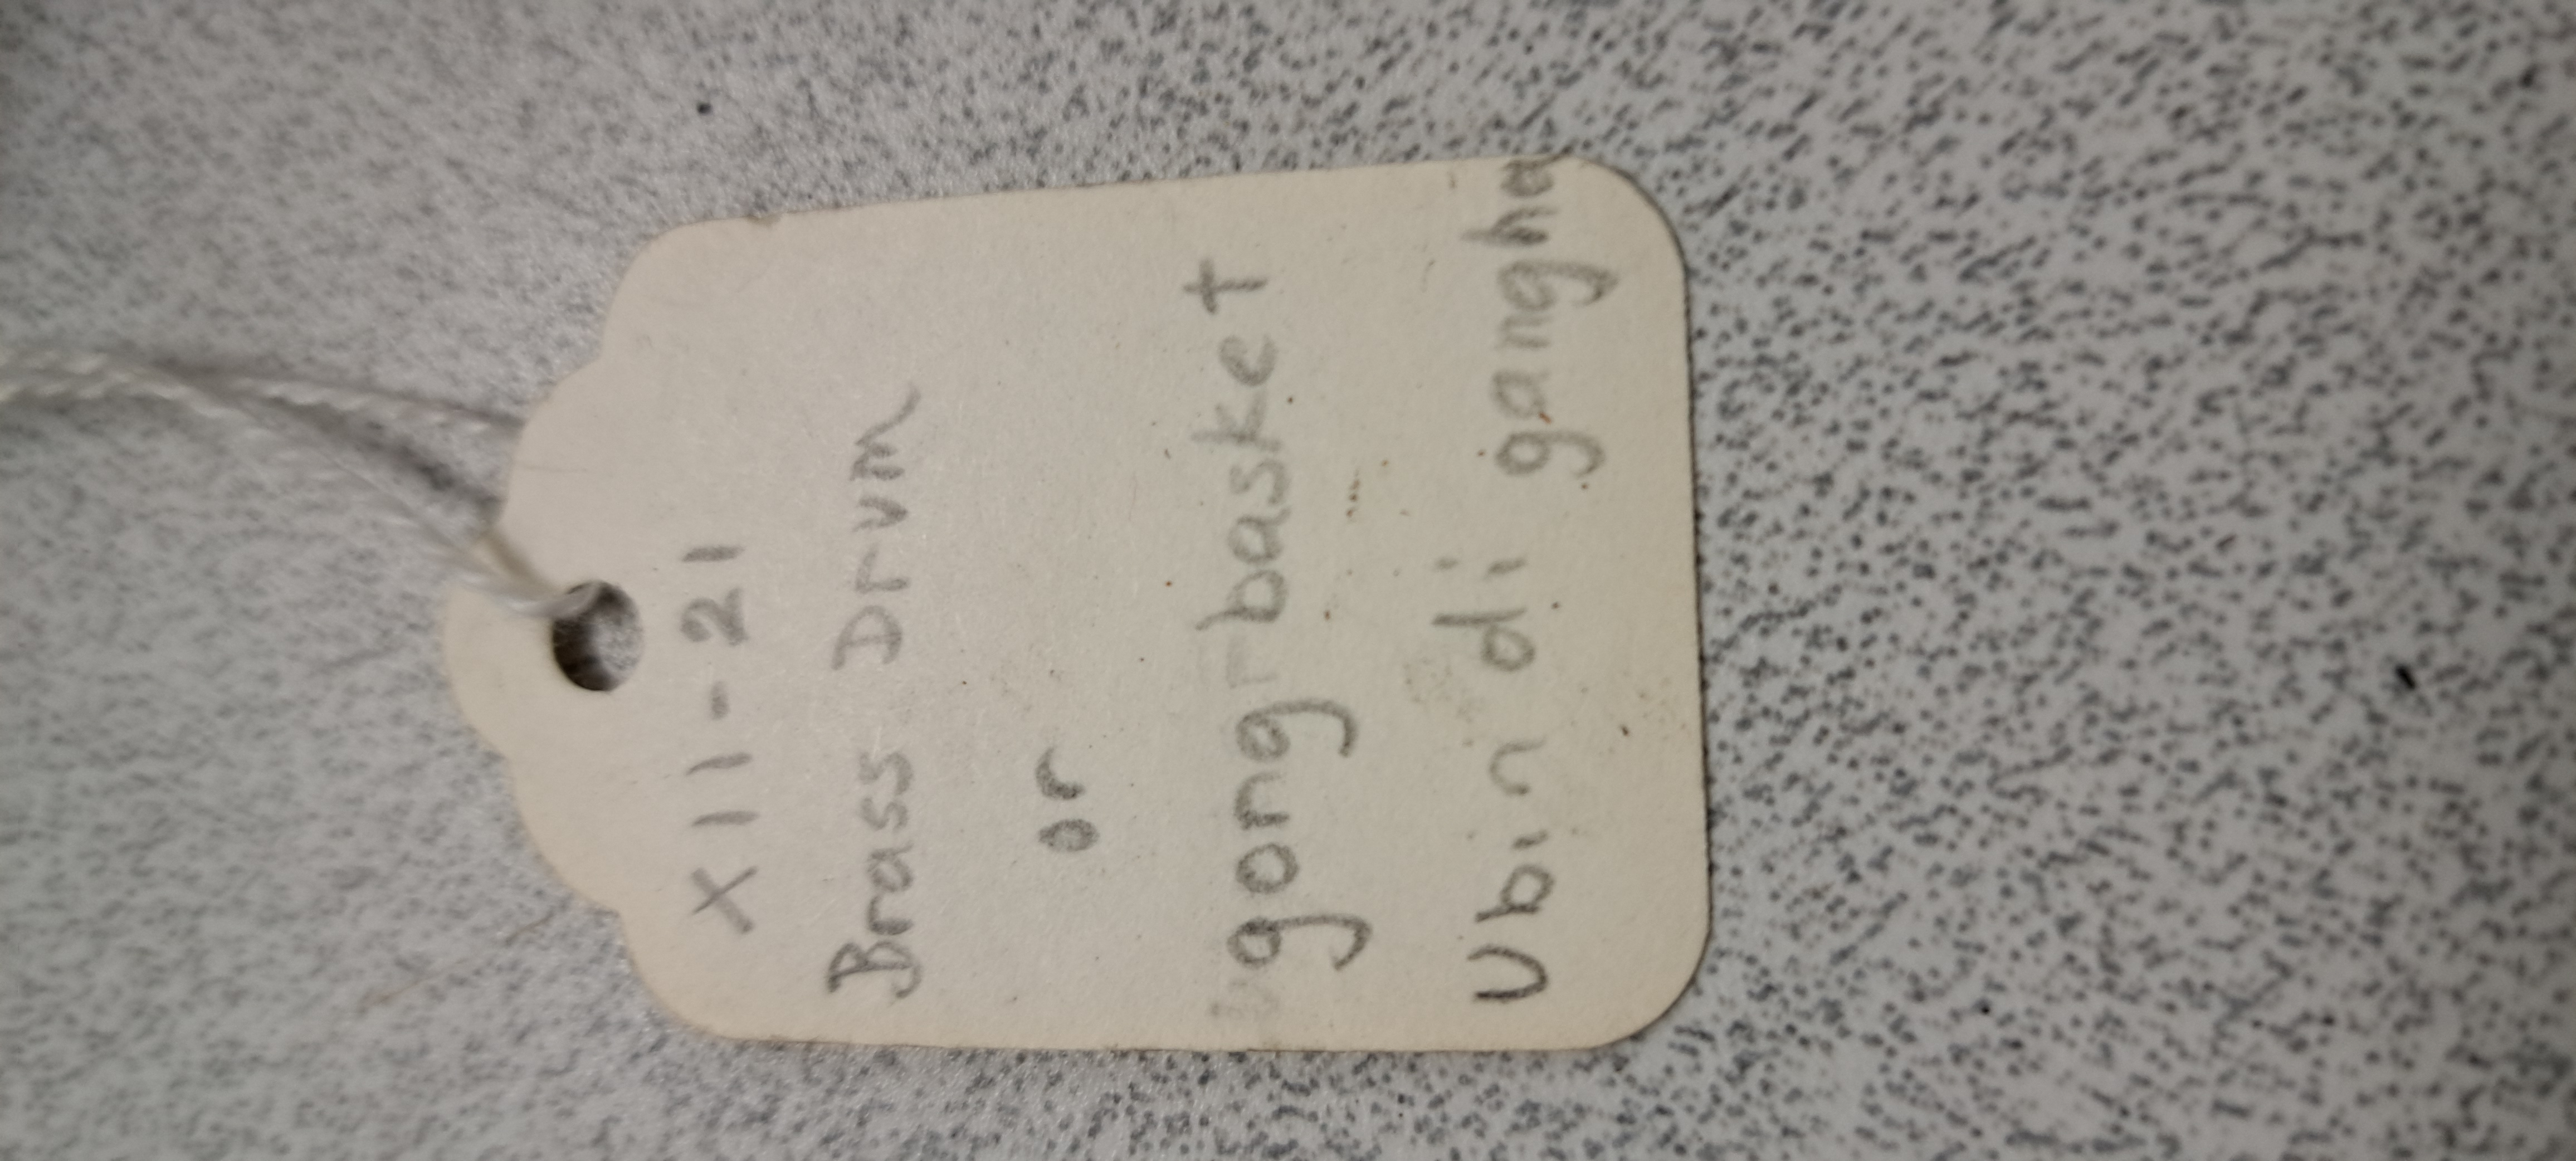 XII-21
Brass Drum
or
gong-basket
Ubin di gangha